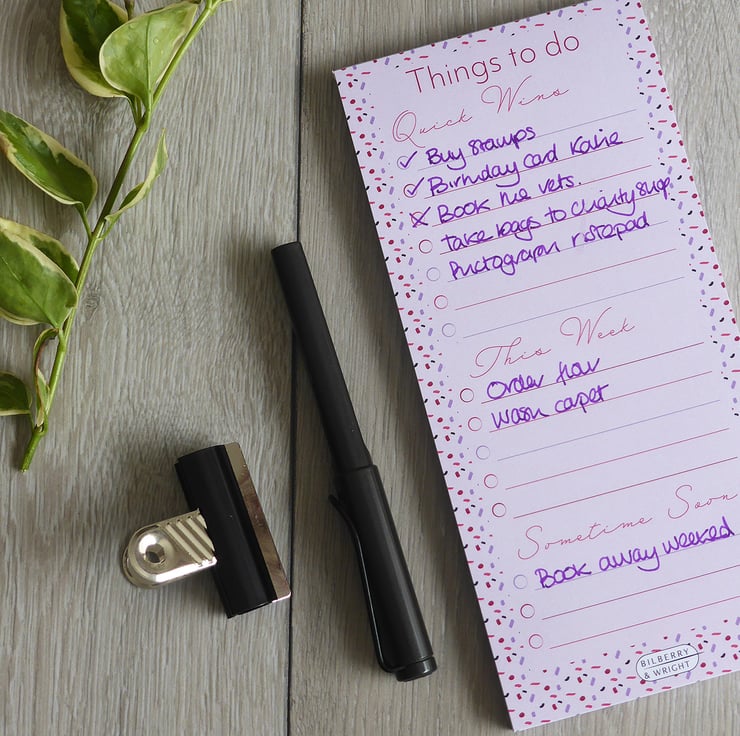 Things to do
Quick Wins
Buy stamps
Birthday card Katie
Book the vets.
take bags to charity shop
Photograph notepad
This Week
Order flour
Wash carpet
Sometime Soon
Book away weeked
BILBERRY
& WRIGHT